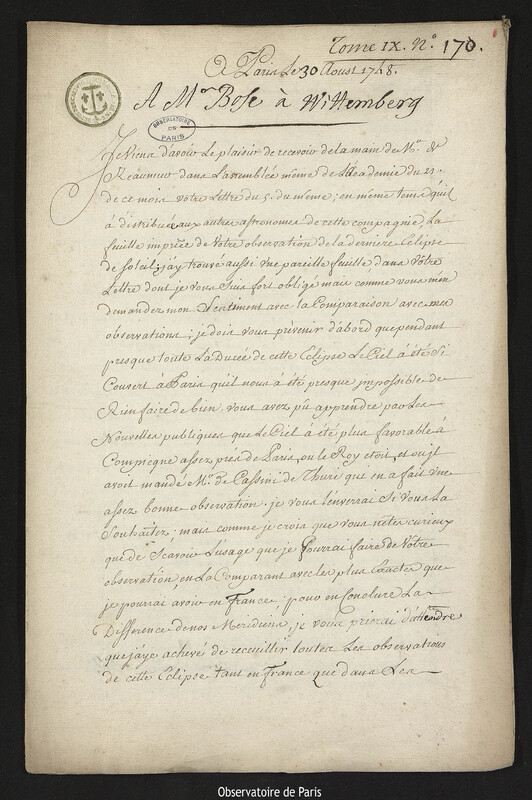 Tome IX. N.º 170.
A Paris Le 30 Aoust 1748.
A Mr Bose à Wittemberg
OBSERVATOIRE DE PARIS
Je Viens d'avoir Le plaisir de recevoir de la main de Mr. de
Reaumur dans L'assemblée même de L'Academie du 21.
de ce mois votre Lettre du 5. du même; en même tems qu'il
à distribué aux autres astronomes de cette compagnie La
feuille imprieé de Votre observation de la derniere Eclipse
de Soleil; j'ay trouvé aussi Une pareille feuille dans Votre
Lettre dont je vous Suis fort obligé mais comme vous m'en
demandez mon Sentiment avec la Comparaison avec mes
observations; je dois vous prévenir d'abord que pendant
presque toute La Durée de cette Eclipse Le Ciel à été Si
Couvert à Paris qu'il nous à été presque impossible de
Rien faire de bien. vous avez pû apprendre par Les
Nouvelles publiques que Le Ciel à été plus favorable à
Compiegne assez près de Paris, ou le Roy etoit, et ou jl
avoit mandé Mr. de Cassini de Thuri qui en a fait Une
assez bonne observation. je vous L'enverrai Si vous La
Souhaitez; mais comme je crois que vous n'etes curieux
que de Scavoir L'usage que je Pourrai faire de Votre
observation, en La Comparant avec les plus Exactes que
je pourrai avoir en France, pour en Conclure La
Difference de nos Meridiens, je vous prierai d'attendre
que j'aye achevé de recueillir toutes Les observations
de cette Eclipse tant en France que dans Les
Observatoire de Paris